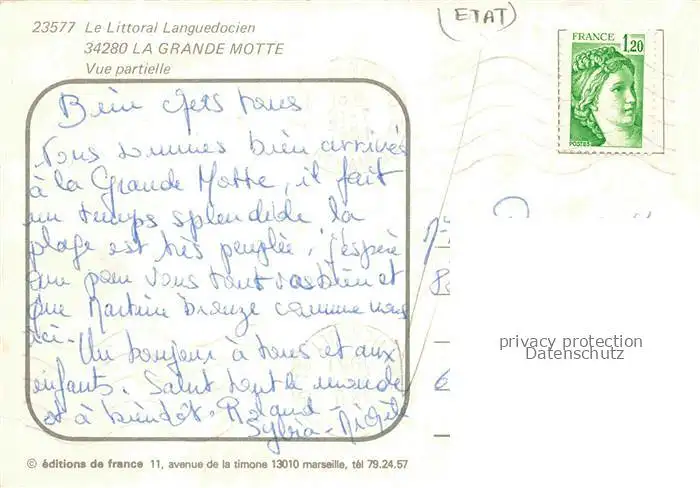 23577 Le Littoral Languedocien
34280 LA GRANDE MOTTE
Vue partielle
(ETAT)
FRANCE 1,20
POSTES
Bien chers tous
Nous sommes bien arrivés
à la Grande Motte, il fait
un temps splendide la
plage est très peuplée, j'espère
que pour vous tout va bien et
que Martine bronze comme nous
ici.
Un bonjour à tous et aux
enfants. Salut tout le monde
et à bientôt. Roland -
Sylvia - Michèle
privacy protection
Datenschutz
© éditions de france 11, avenue de la timone 13010 marseille, tél 79.24.57